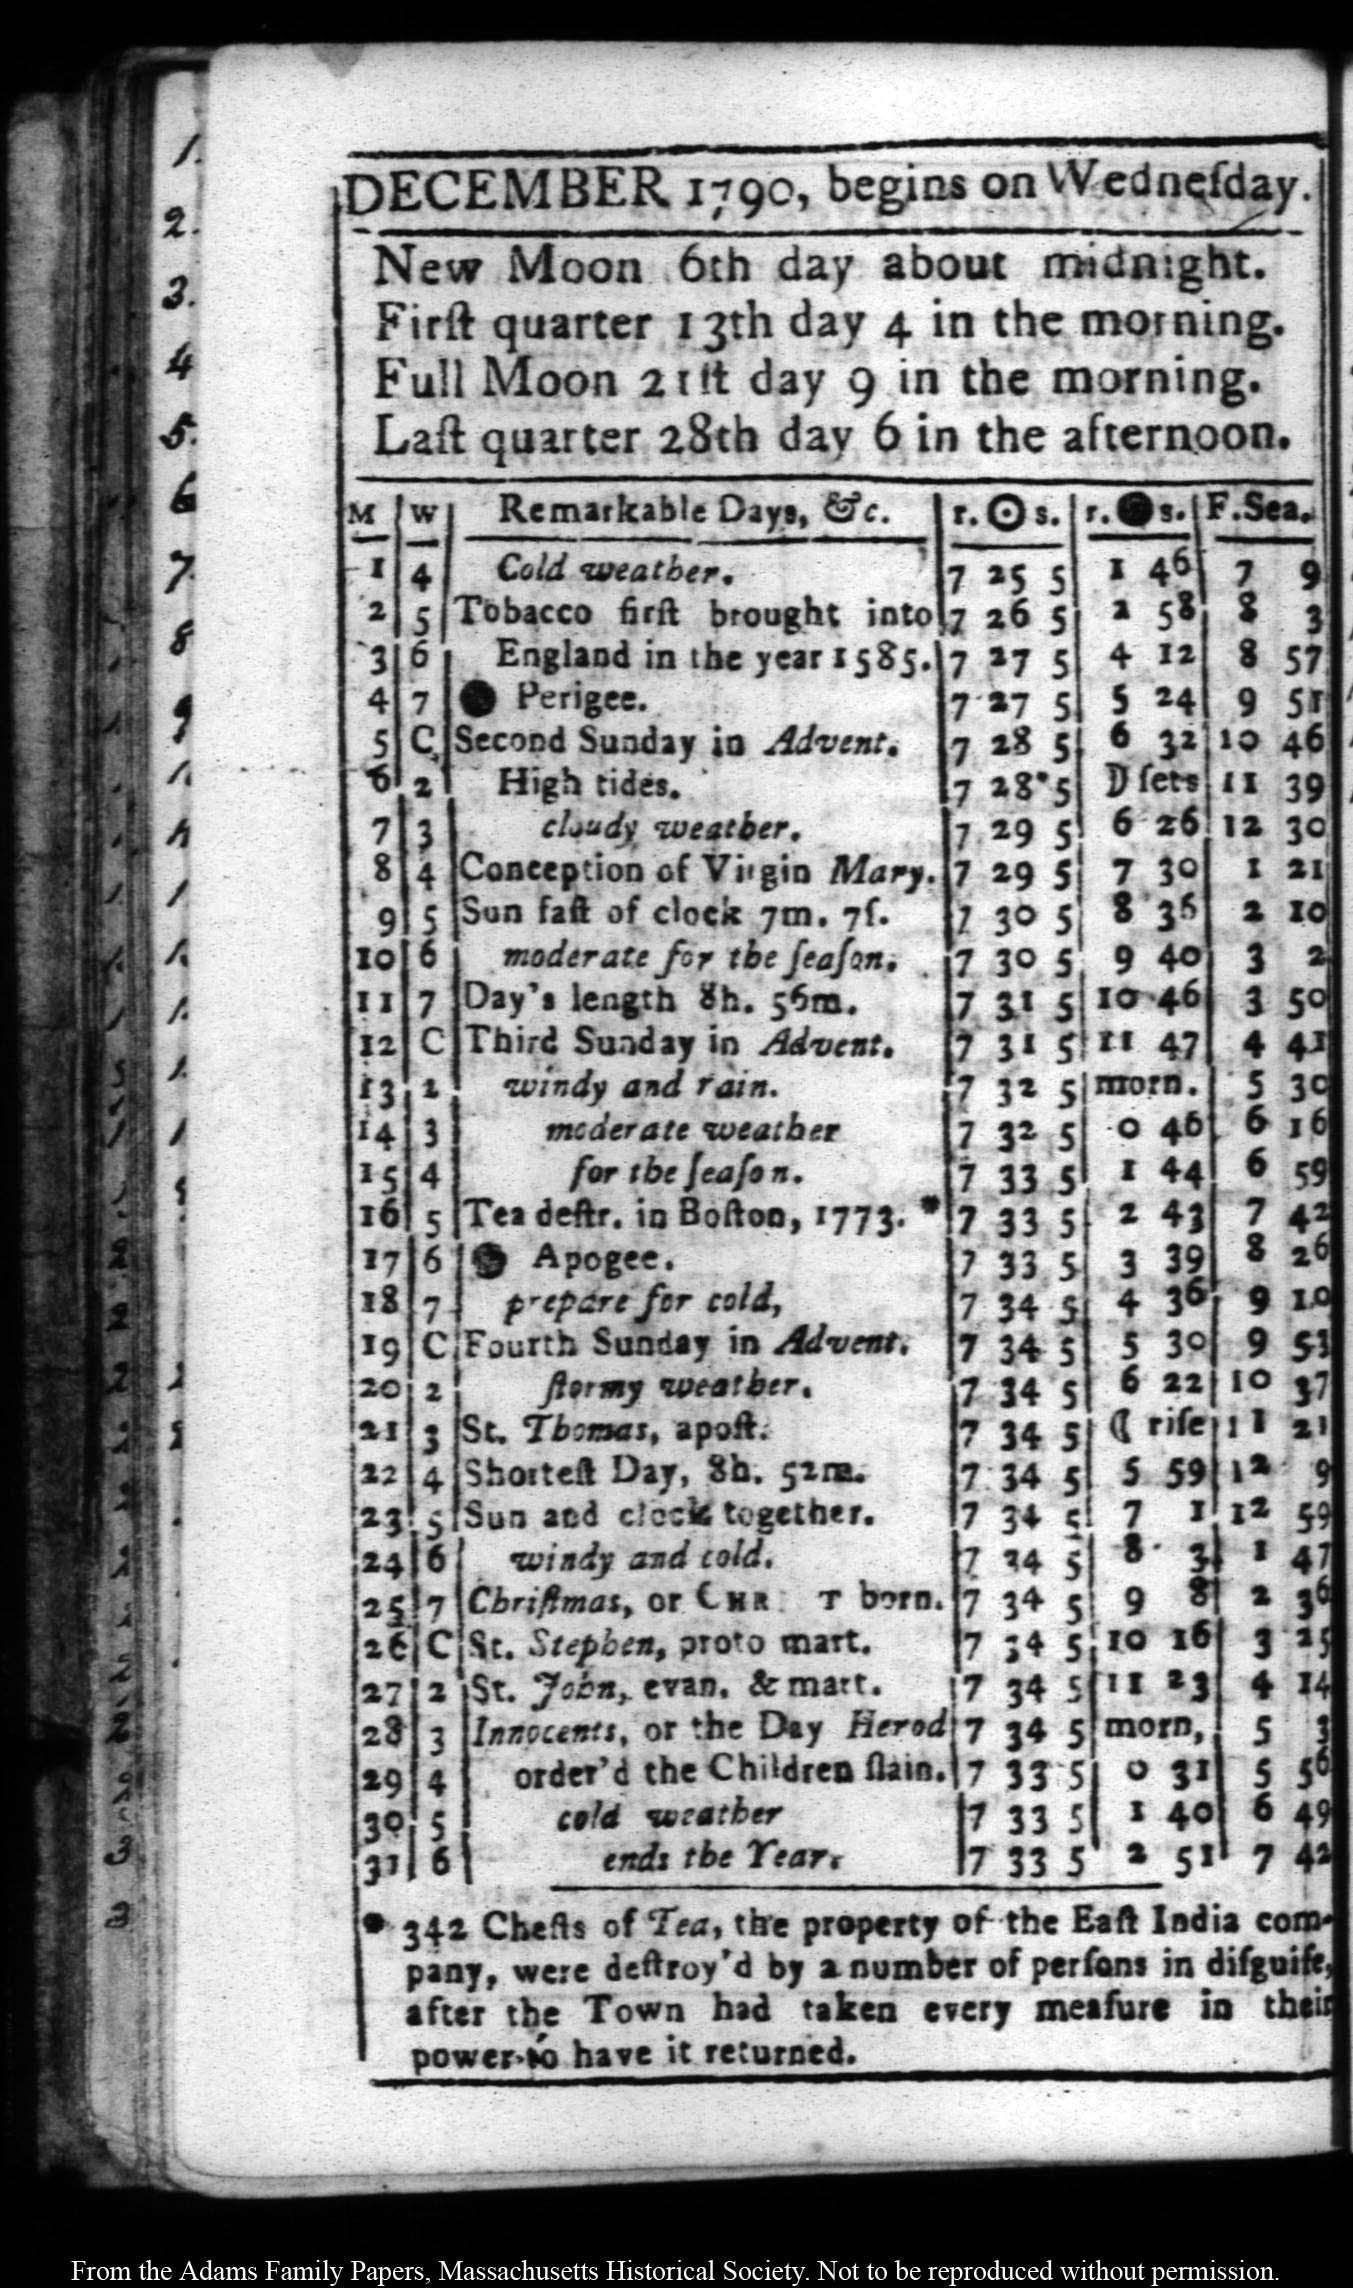 1.
2.
3.
4
5.
6
7.
8
9
DECEMBER 1790, begins on Wedneſday.
New Moon 6th day about midnight.
Firſt quarter 13th day 4 in the morning.
Full Moon 21ſt day 9 in the morning.
Laſt quarter 28th day 6 in the afternoon.
M W Remarkable Days, &c. r. ☉ s. r. ● s. F. Sea.
1 4 Cold weather. 7 25 5 1 46 7 9
2 5 Tobacco firſt brought into 7 26 5 2 58 8 3
3 6 England in the year 1585. 7 27 5 4 12 8 57
4 7 ● Perigee. 7 27 5 5 24 9 51
5 C Second Sunday in Advent. 7 28 5 6 32 10 46
6 2 High tides. 7 28 5 ☽ ſets 11 39
7 3 cloudy weather. 7 29 5 6 26 12 30
8 4 Conception of Virgin Mary. 7 29 5 7 30 1 21
9 5 Sun faſt of clock 7m. 7ſ. 7 30 5 8 36 2 10
10 6 moderate for the ſeaſon. 7 30 5 9 40 3 2
11 7 Day's length 8h. 56m. 7 31 5 10 46 3 50
12 C Third Sunday in Advent. 7 31 5 11 47 4 41
13 2 windy and rain. 7 32 5 morn. 5 30
14 3 moderate weather 7 32 5 0 46 6 16
15 4 for the ſeaſon. 7 33 5 1 44 6 59
16 5 Tea deſtr. in Boſton, 1773. * 7 33 5 2 43 7 42
17 6 ● Apogee. 7 33 5 3 39 8 26
18 7 prepare for cold, 7 34 5 4 36 9 10
19 C Fourth Sunday in Advent. 7 34 5 5 30 9 53
20 2 ſtormy weather. 7 34 5 6 22 10 37
21 3 St. Thomas, apoſt. 7 34 5 ☾ riſe 11 21
22 4 Shorteſt Day, 8h. 52m. 7 34 5 5 59 12 9
23 5 Sun and clock together. 7 34 5 7 1 12 59
24 6 windy and cold. 7 34 5 8 3 1 47
25 7 Chriſtmas, or born. 7 34 5 9 8 2 36
26 C St. Stephen, proto mart. 7 34 5 10 16 3 25
27 2 St. John, evan. & mart. 7 34 5 11 23 4 14
28 3 Innocents, or the Day Herod 7 34 5 morn, 5 3
29 4 order'd the Children ſlain. 7 33 5 0 31 5 56
30 5 cold weather 7 33 5 1 40 6 49
31 6 ends the Year. 7 33 5 2 51 7 42
* 342 Cheſts of Tea, the property of the Eaſt India com-
pany, were deſtroy'd by a number of perſons in diſguiſe,
after the Town had taken every meaſure in their
power to have it returned.
From the Adams Family Papers, Massachusetts Historical Society. Not to be reproduced without permission.